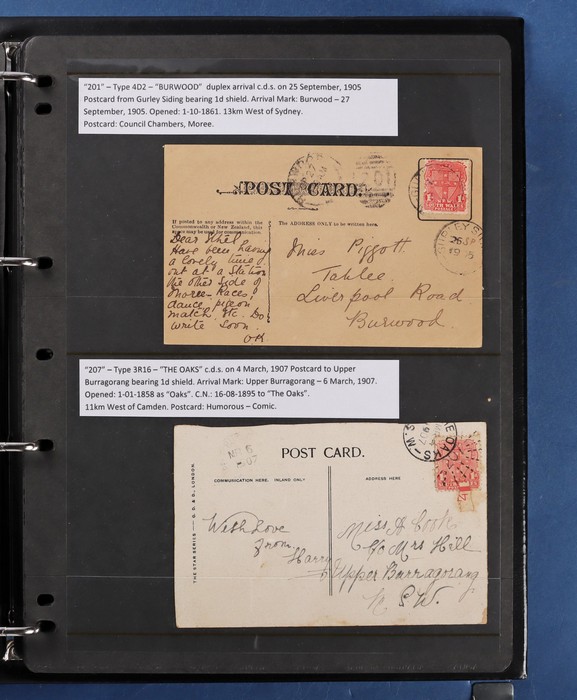 "201" – Type 4D2 – "BURWOOD" duplex arrival c.d.s. on 25 September, 1905
Postcard from Gurley Siding bearing 1d shield. Arrival Mark: Burwood – 27
September, 1905. Opened: 1-10-1861. 13km West of Sydney.
Postcard: Council Chambers, Moree.
POST CARD.
If posted to any address within the
Commonwealth or New Zealand, this
space may be used for communication.
The ADDRESS ONLY to be written here.
SOUTH WALES
26 SP
Dear Ethel
Have been having
a lovely time
out at a Station
the other Syde of
Moree. Races,
dance, pigeon
match, etc. Do
write soon
Miss Piggott
Tahlee
Liverpool Road
Burwood.
"207" – Type 3R16 – "THE OAKS" c.d.s. on 4 March, 1907 Postcard to Upper
Burragorang bearing 1d shield. Arrival Mark: Upper Burragorang – 6 March, 1907.
Opened: 1-01-1858 as "Oaks". C.N.: 16-08-1895 to "The Oaks".
11km West of Camden. Postcard: Humorous – Comic.
POST CARD.
COMMUNICATION HERE. INLAND ONLY
ADDRESS HERE
THE STAR SERIES — G. D. & D., LONDON
E OAKS
With Love
from
Harry
Miss A Cook
C/o Mrs Hill
Upper Burragorang
N.S.W.